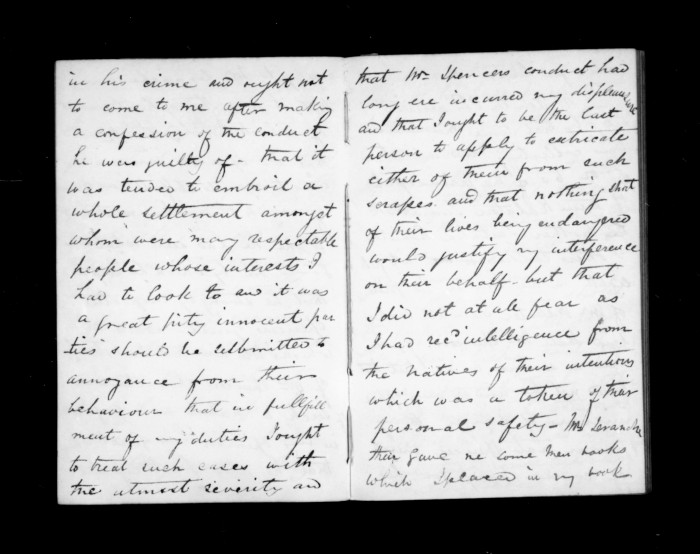 in his crime and ought not
to come to me after making
a confession of the conduct
he was guilty of - that it
was tended to embroil a
whole settlement amongst
whom were many respectable
people whose interests I
had to look to and it was
a great pity innocent par
ties should be submitted to
annoyance from their
behaviour that in fullfill
ment of my duties I ought
to treat such cases with
the utmost severity and
that Mr Spencers conduct had
long ere incurred my displeasure
and that I ought to be the last
person to apply to extricate
either of them from such
scrapes and that nothing short
of their lives being endangered
would justify my interference
on their behalf - but that
I did not at all fear as
I had recd intelligence from
the natives of their intentions
which was a token of their
personal safety - Mr
then gave me some
which I placed in my